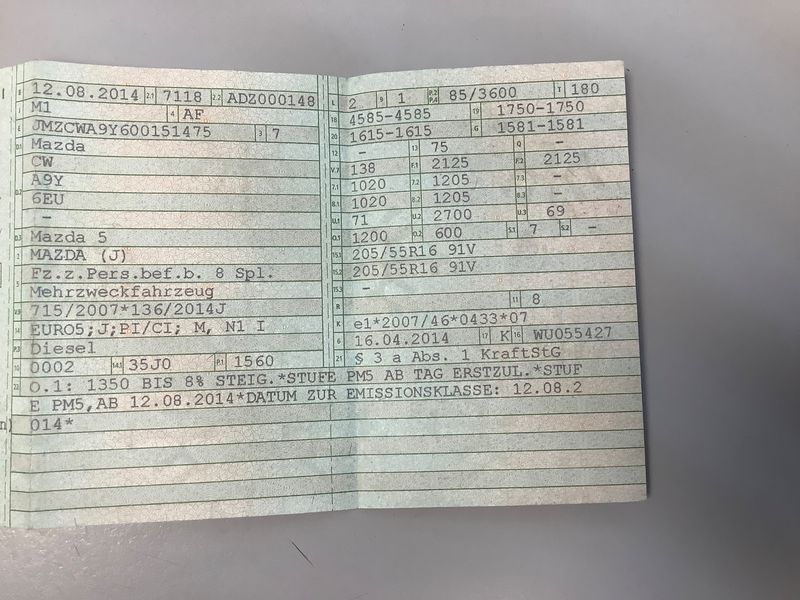 B 12.08.2014 2.1 7118 2.2 ADZ000148
J M1 4 AF
E JMZCWA9Y600151475 3 7
D.1 Mazda
CW
A9Y
D.2 6EU
-
D.3 Mazda 5
2 MAZDA (J)
Fz.z.Pers.bef.b. 8 Spl.
5 Mehrzweckfahrzeug
V.9 715/2007*136/2014J
14 EURO5;J;PI/CI; M, N1 I
P.3 Diesel
10 0002 14.1 35J0 P.1 1560
L 2 9 1 P.2 P.4 85/3600 T 180
18 4585-4585 19 1750-1750
20 1615-1615 G 1581-1581
12 - 13 75 Q -
V.7 138 F.1 2125 F.2 2125
7.1 1020 7.2 1205 7.3 -
8.1 1020 8.2 1205 8.3 -
U.1 71 U.2 2700 U.3 69
O.1 1200 O.2 600 S.1 7 S.2 -
15.1 205/55R16 91V
15.2 205/55R16 91V
15.3 -
R 11 8
K e1*2007/46*0433*07
6 16.04.2014 17 K 16 WU055427
21 § 3 a Abs. 1 KraftStG
22 O.1: 1350 BIS 8% STEIG.*STUFE PM5 AB TAG ERSTZUL.*STUF
E PM5,AB 12.08.2014*DATUM ZUR EMISSIONSKLASSE: 12.08.2
014*